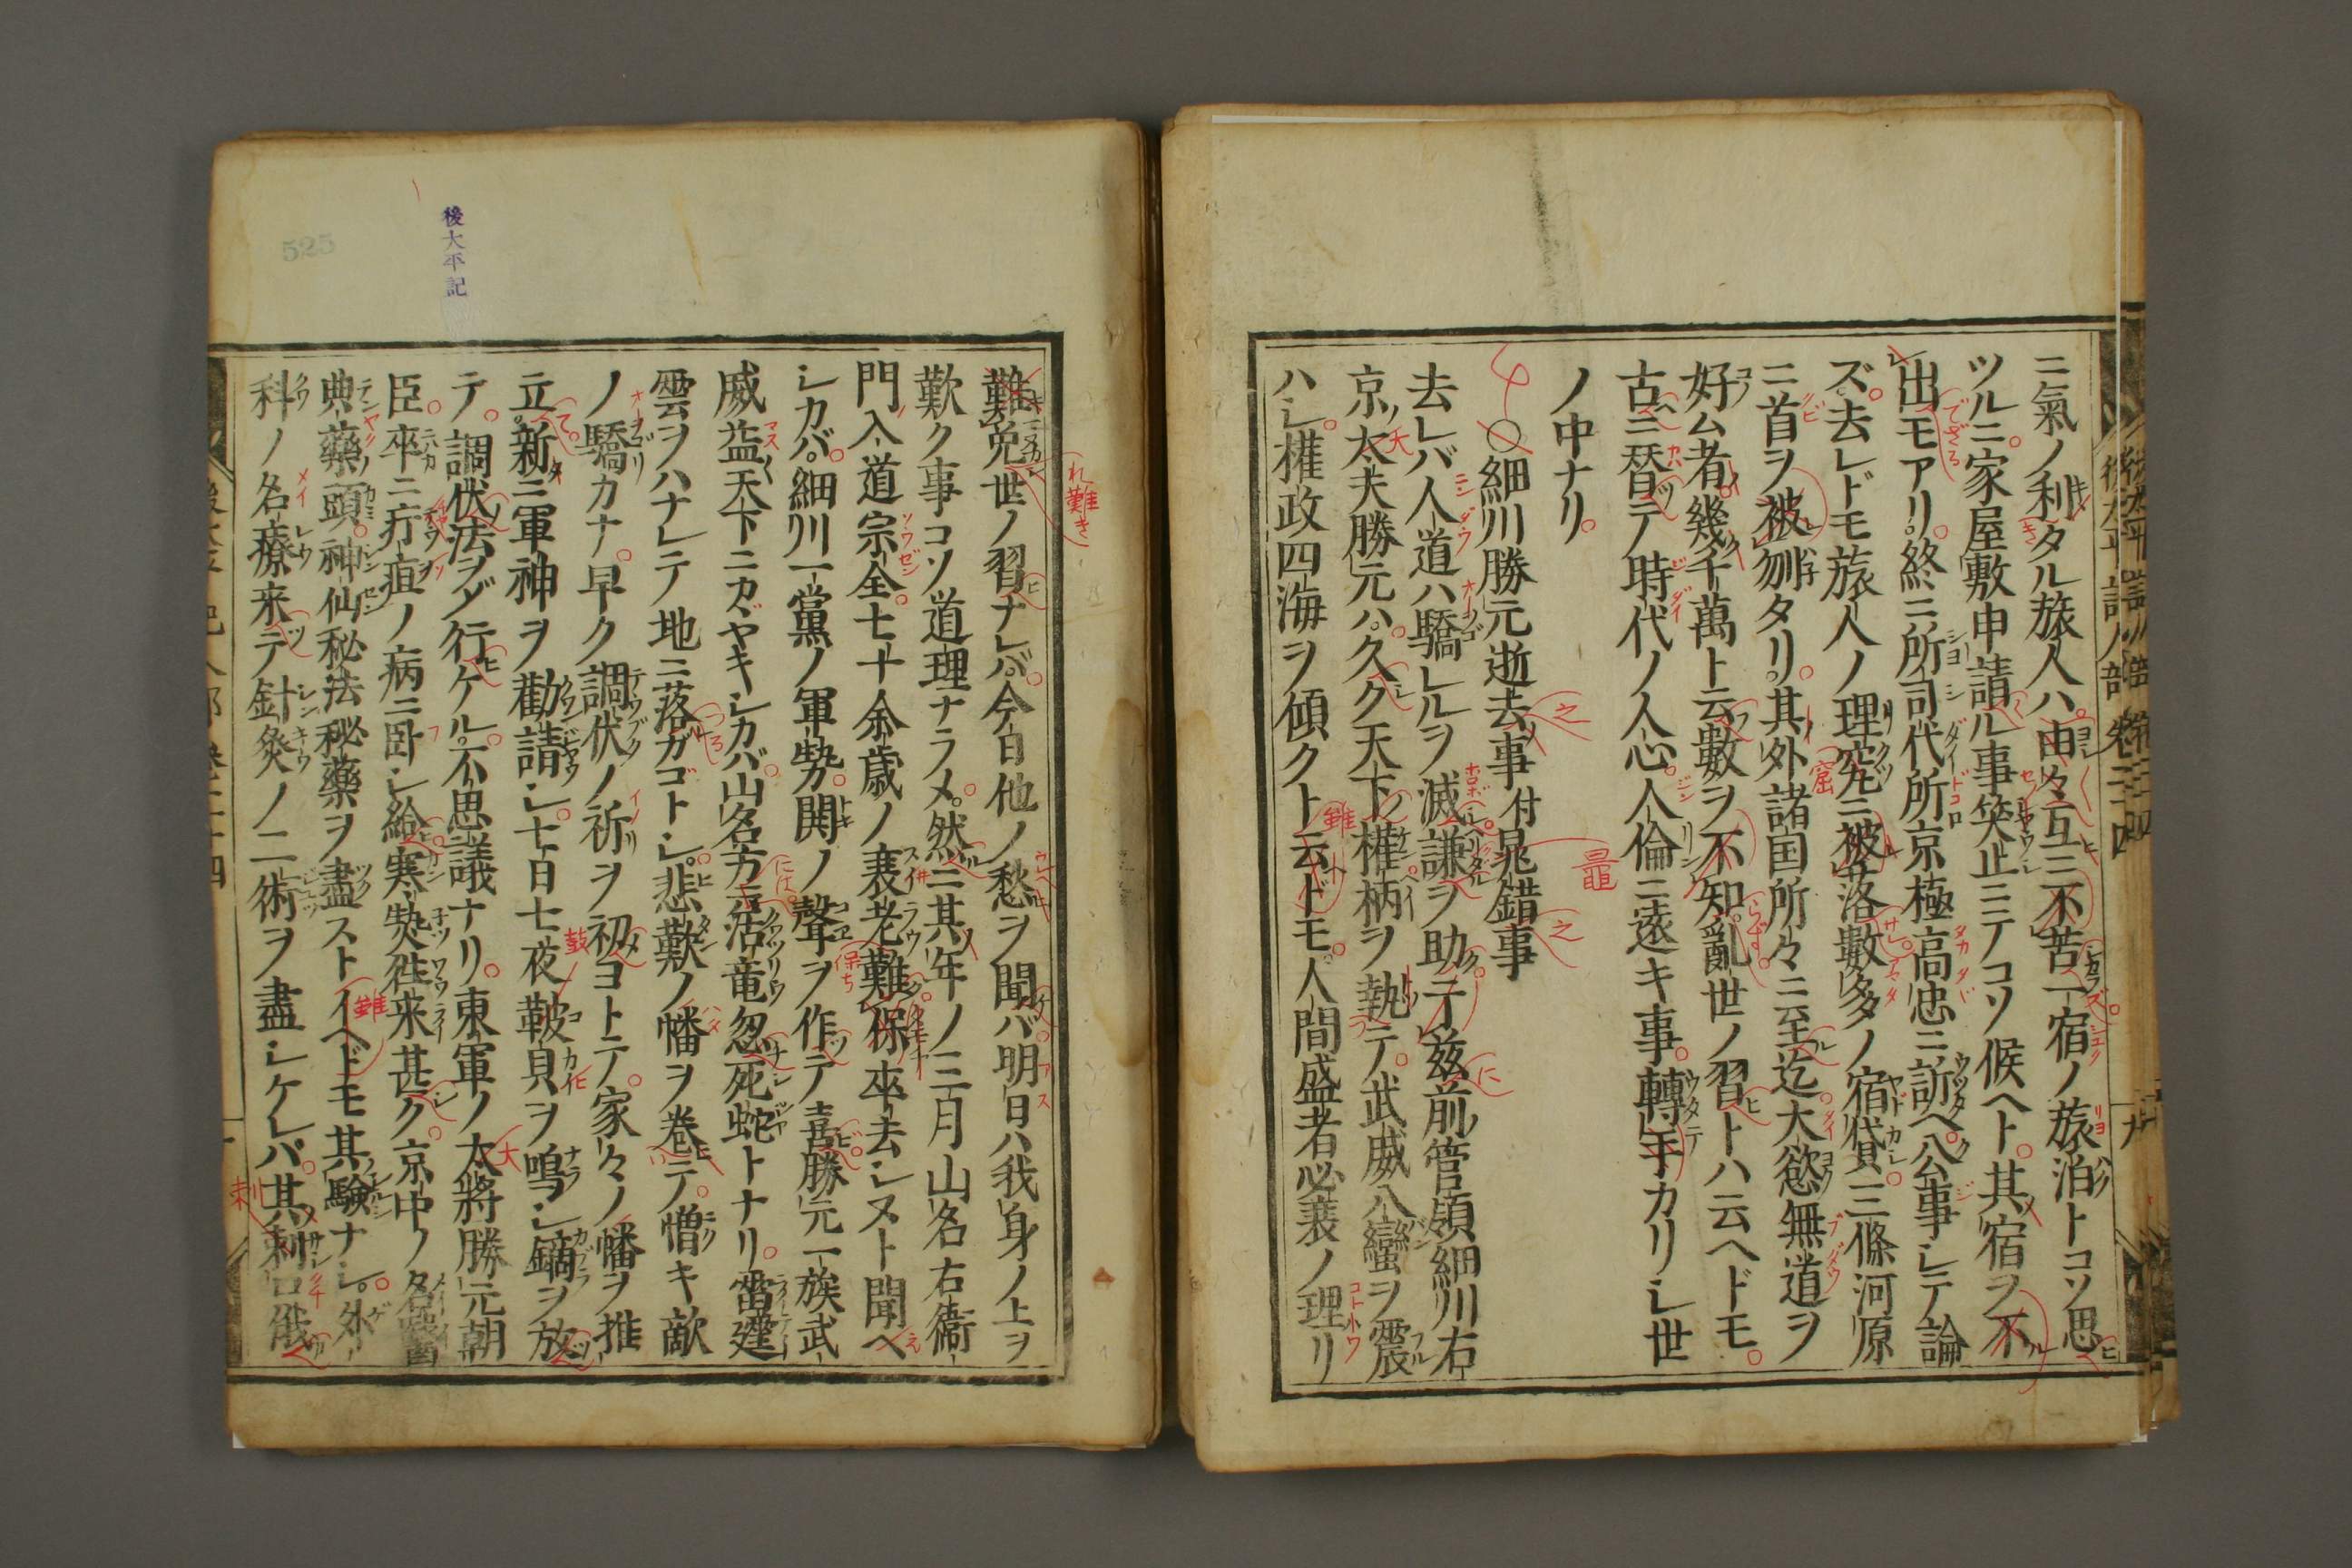 ニ氣ノ利タル旅人ハ由々互ニ不苦一宿ノ旅泊トコソ思
ツルニ家屋敷申請ル事笑止ニテコソ候ヘト其宿ヲ不
出モアリ終ニ所司代所京極高忠ニ訴ヘ公事シテ論
ズ去レドモ旅人ノ理究ニ被落數多ノ宿貸三條河原
ニ首ヲ被刎タリ其外諸国所々ニ至迄大慾無道ヲ
好ム者幾千萬ト云數ヲ不知亂世ノ習トハ云ヘドモ
古ニ替テ時代ノ人心人倫ニ遠キ事轉手カリシ世
ノ中ナリ
○細川勝元逝去事付晁錯事
去レバ人道ハ驕レルヲ滅謙ヲ助ク于茲前管領細川右
京太夫勝元ハ久ク天下ノ權柄ヲ執テ武威八蠻ヲ震
ハシ權政四海ヲ傾クト云ドモ人間盛者必衰ノ理リ
難免世ノ習ナレバ今日他ノ愁ヲ聞バ明日ハ我身ノ上ヲ
歎ク事コソ道理ナラメ然ニ其年ノ三月山名右衞
門入道宗全七十余歳ノ衰老難保卒去シヌト聞ヘ
シカバ細川一黨ノ軍勢鬨ノ聲ヲ作テ喜勝元一族武
威益天下ニカヾヤキシカバ山名方ニ活竜忽死蛇トナリ雷霆
雲ヲハナレテ地ニ落ガゴトシ悲歎ノ幡ヲ巻テ憎キ敵
ノ驕カナ早ク調伏ノ祈ヲ初ヨトテ家々ノ幡ヲ推
立新ニ軍神ヲ勸請シ七日七夜鞁貝ヲ鳴シ鏑ヲ放
テ調伏法ヲゾ行ケル不思議ナリ東軍ノ太將勝元朝
臣卒ニ疔疽ノ病ニ臥シ給寒熱徃来甚ク京中ノ名醫
典藥頭神仙秘法秘藥ヲ盡ストイヘドモ其驗ナシ外
科ノ名療来テ針灸ノ二術ヲ盡シケレバ其
後太平記
525